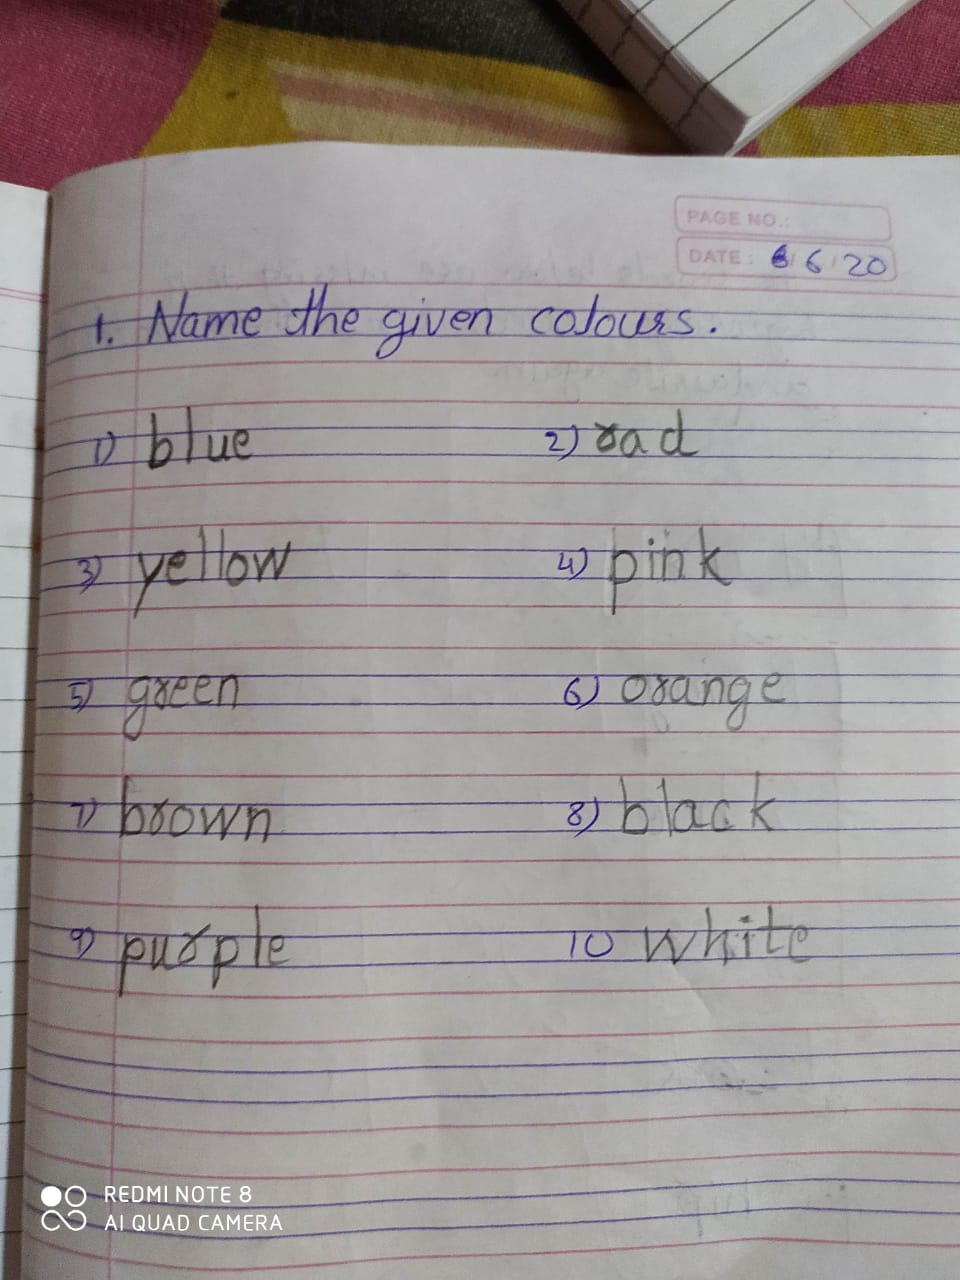 PAGE NO.:
DATE: 6/6/20
1. Name the given colours.
1) blue 2) rad
3) yellow 4) pink
5) green 6) orange
7) brown 8) black
9) purple 10 white
REDMI NOTE 8
AI QUAD CAMERA